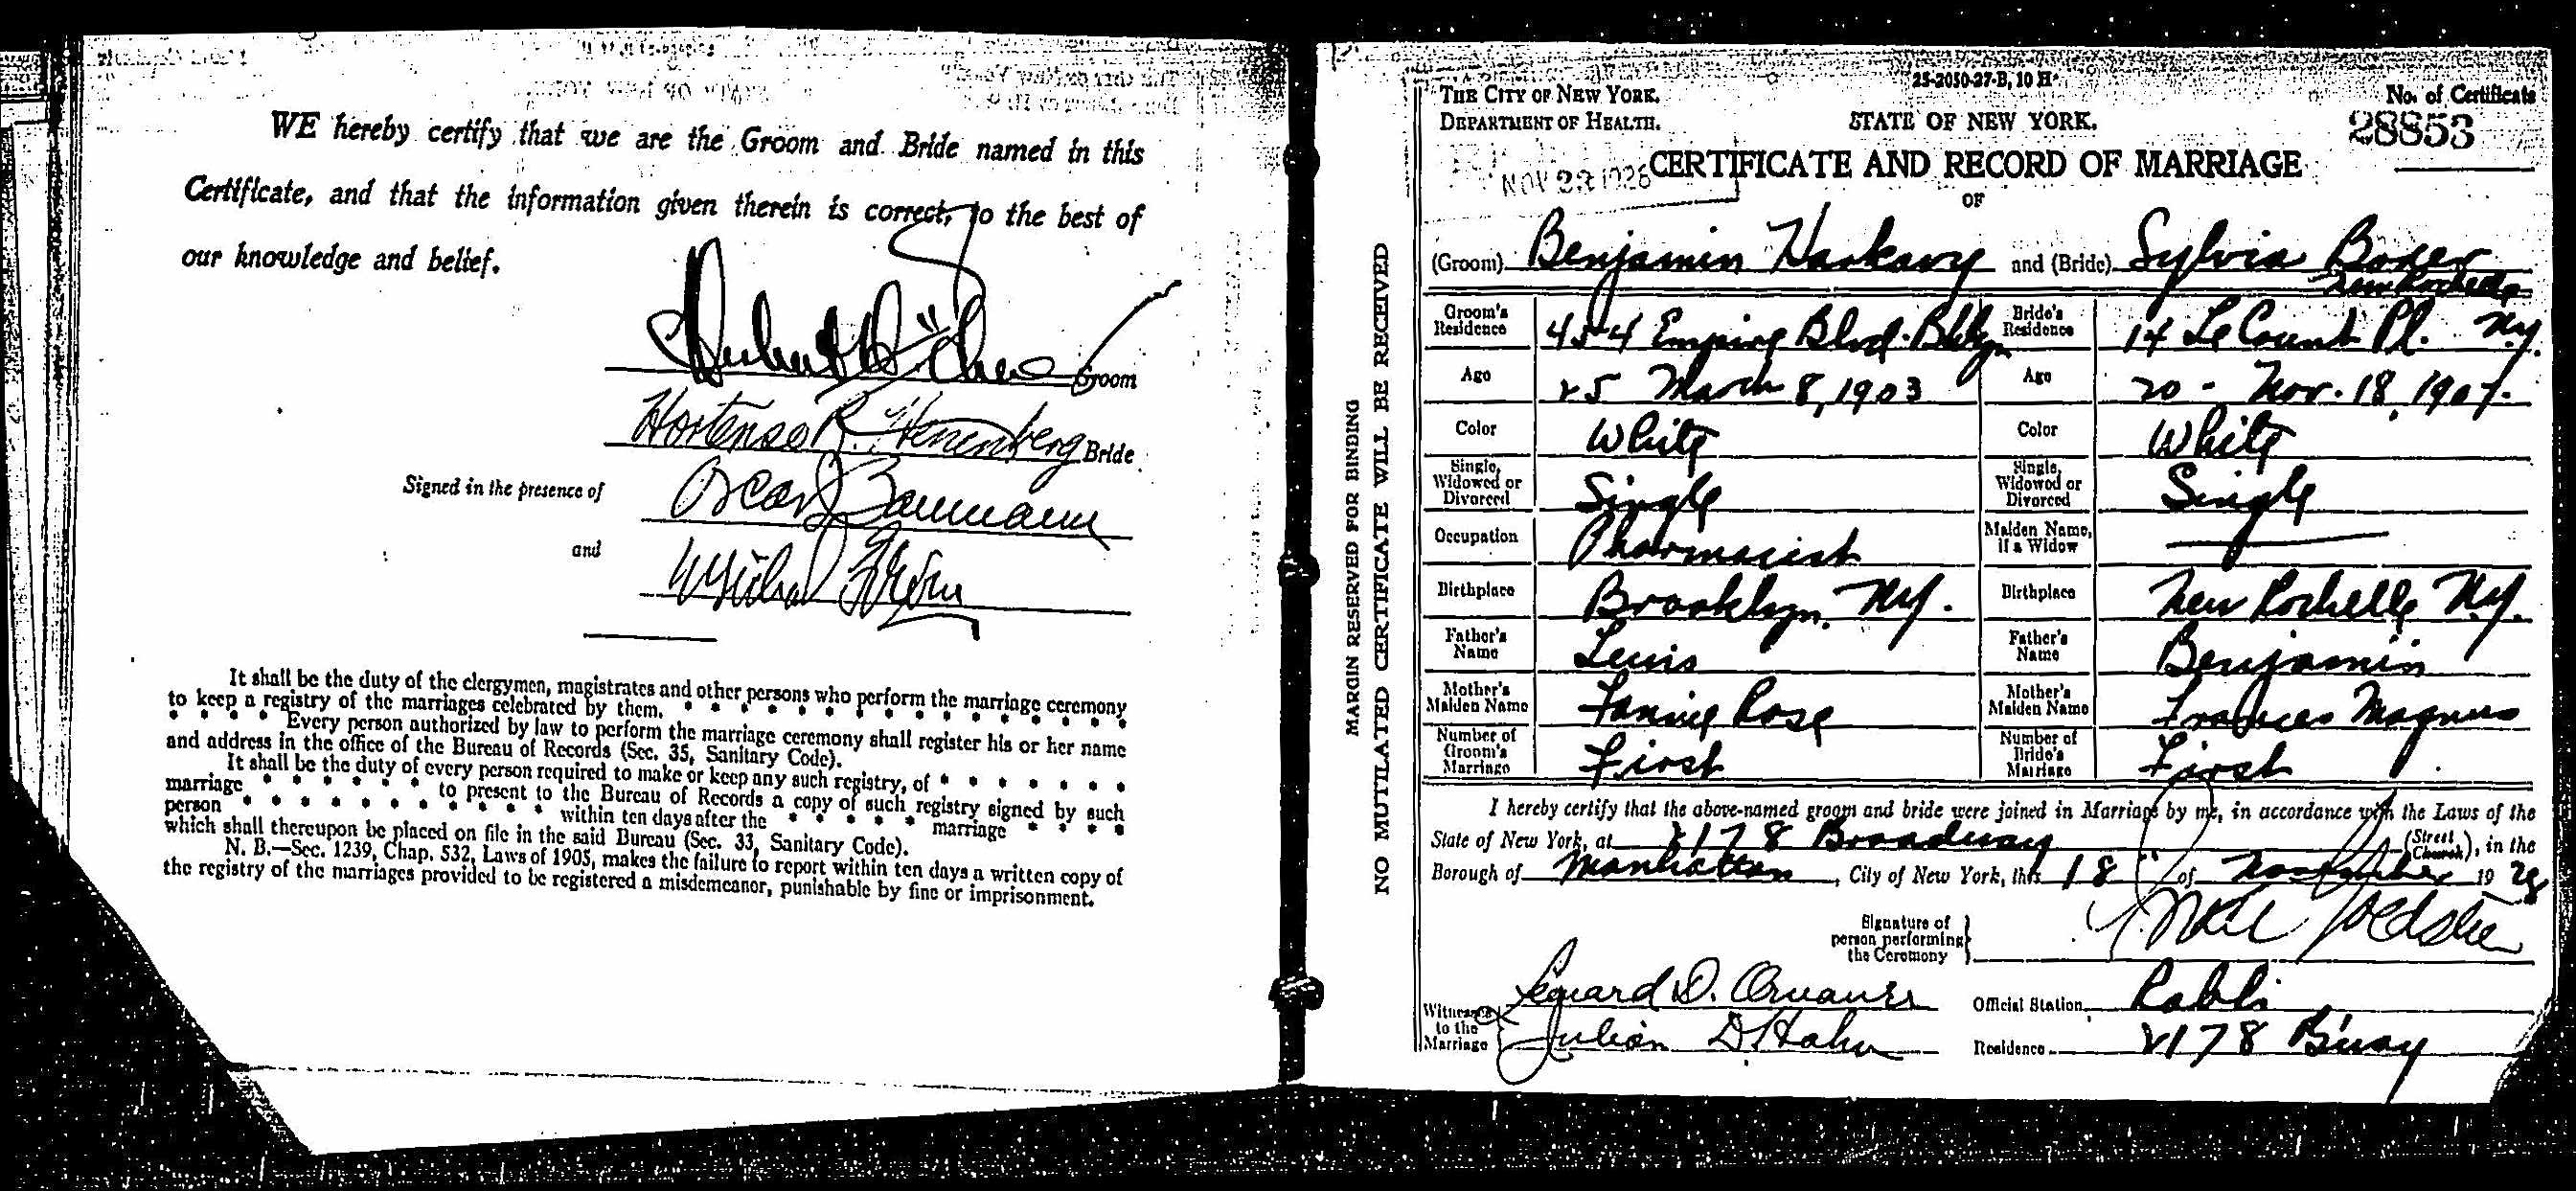 WE hereby certify that we are the Groom and Bride named in this
Certificate, and that the information given therein is correct, to the best of
our knowledge and belief.
Groom
Hortense R. Bride
Signed in the presence of Oscar Baumann
and
It shall be the duty of the clergymen, magistrates and other persons who perform the marriage ceremony
to keep a registry of the marriages celebrated by them. * * * * * * * * * * *
* * * * Every person authorized by law to perform the marriage ceremony shall register his or her name
and address in the office of the Bureau of Records (Sec. 35, Sanitary Code).
It shall be the duty of every person required to make or keep any such registry, of * * * * * * *
marriage * * * * * * to present to the Bureau of Records a copy of such registry signed by such
person * * * * * * * * * * within ten days after the * * * * * marriage * * * *
which shall thereupon be placed on file in the said Bureau (Sec. 33, Sanitary Code).
N. B.—Sec. 1239, Chap. 532, Laws of 1905, makes the failure to report within ten days a written copy of
the registry of the marriages provided to be registered a misdemeanor, punishable by fine or imprisonment.
MARGIN RESERVED FOR BINDING
NO MUTILATED CERTIFICATE WILL BE RECEIVED
25-2050-27-B, 10 H
THE CITY OF NEW YORK.
DEPARTMENT OF HEALTH.
STATE OF NEW YORK.
No. of Certificate
28853
NOV 1928
CERTIFICATE AND RECORD OF MARRIAGE
OF
(Groom) Benjamin Harkavy and (Bride) Sylvia Boxer
New Rochelle
Groom's Residence 454 Empire Blvd. Bklyn Bride's Residence 14 Le Count Pl. N.Y.
Age 25 March 8, 1903 Age 20 - Nov. 18, 1907.
Color White Color White
Single, Widowed or Divorced Single Single, Widowed or Divorced Single
Occupation Pharmacist Maiden Name, if a Widow
Birthplace Brooklyn, N.Y. Birthplace New Rochelle N.Y.
Father's Name Louis Father's Name Benjamin
Mother's Maiden Name Fannie Rose Mother's Maiden Name Frances Magnus
Number of Groom's Marriage First Number of Bride's Marriage First
I hereby certify that the above-named groom and bride were joined in Marriage by me, in accordance with the Laws of the
State of New York, at 2178 Broadway (Street Church), in the
Borough of Manhattan, City of New York, this 18 of November 1928
Signature of person performing the Ceremony
Witnesses to the Marriage Leonard D. Official Station Rabbi
Julian D. Hahn Residence 2178 B'way